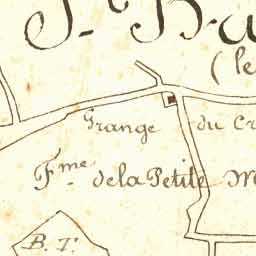 St Ba
(le
Grange du Cr
Fme de la Petite M
B. T.